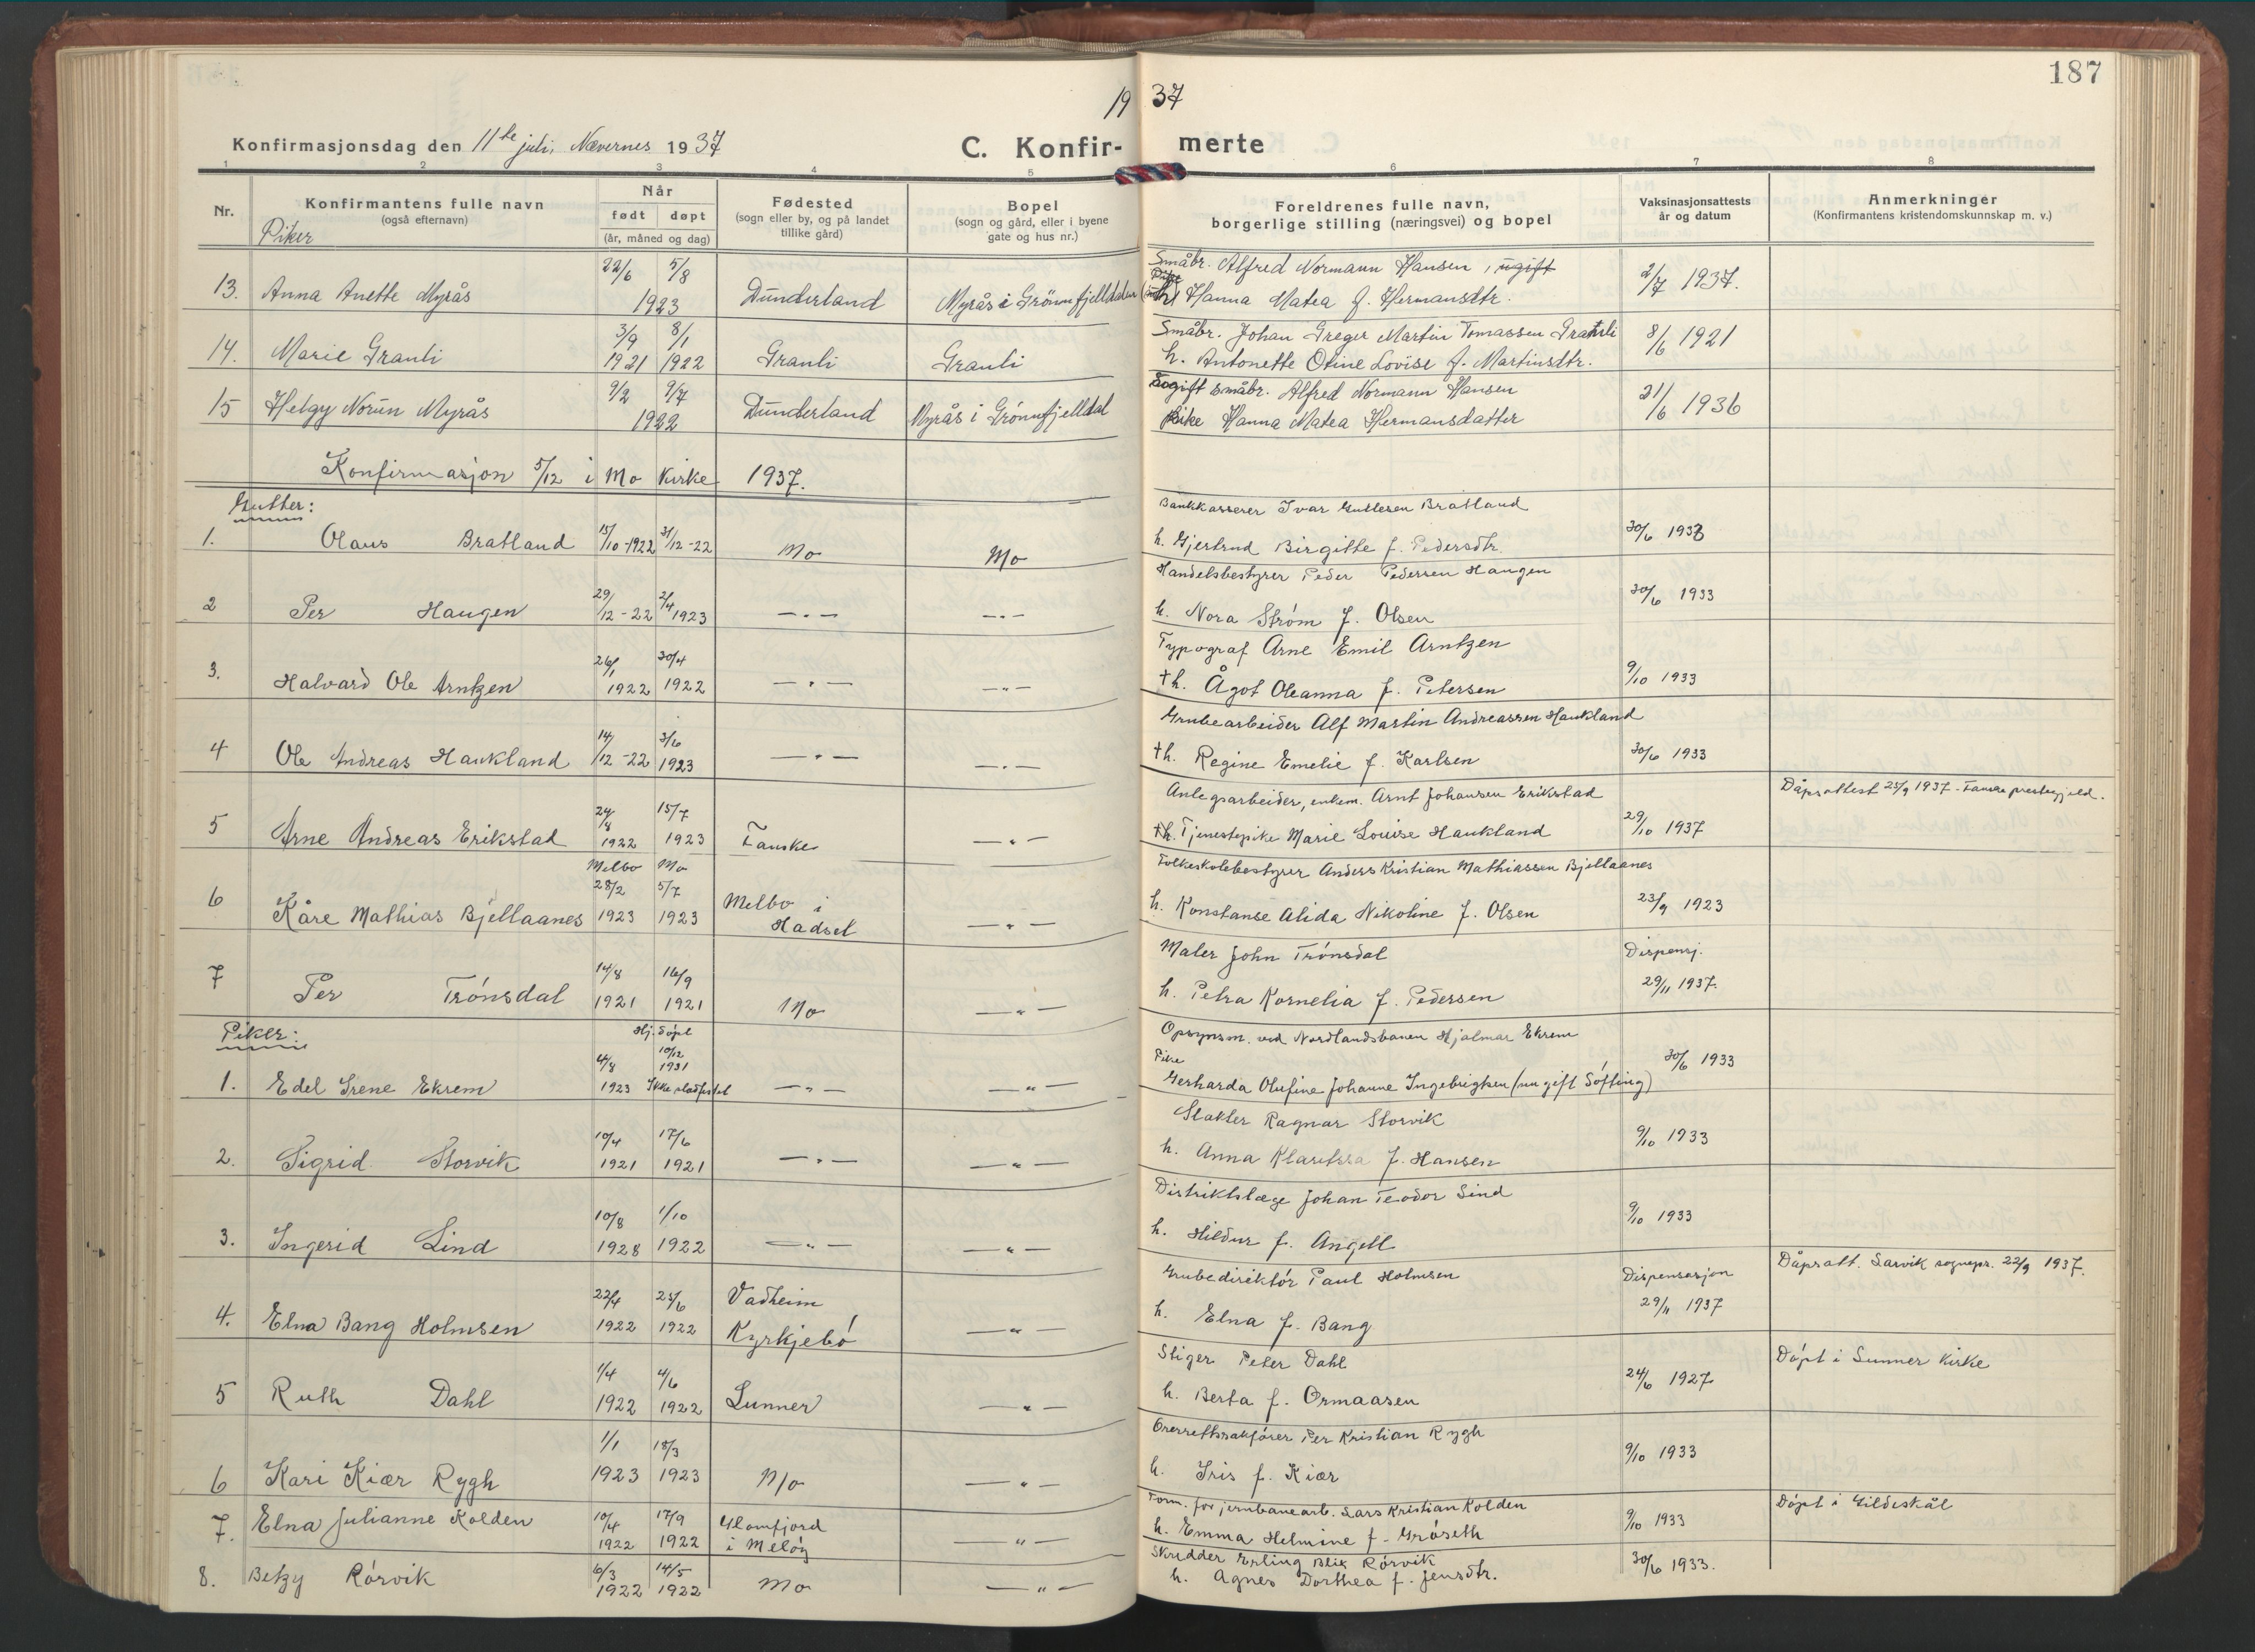 187
19 37
Konfirmasjonsdag den 11te juli, Nævernes 1937
C. Konfir- merte
1 2 3 4 5 6 7 8
Nr.
Konfirmantens fulle navn
(også efternavn)
Piker
Når
født døpt
(år, måned og dag)
Fødested
(sogn eller by, og på landet
tillike gård)
Bopel
(sogn og gård, eller i byene
gate og hus nr.)
Foreldrenes fulle navn,
borgerlige stilling (næringsvei) og bopel
Vaksinasjonsattests
år og datum
Anmerkninger
(Konfirmantens kristendomskunnskap m. v.)
22/6 5/8 Småbr. Alfred Normann Hansen, ugift
13. Anna Anette Myrås 1923 Dunderland Myrås i Grönnfjelldalen Pike Hanna Matea f. Hermansdtr. 2/7 1937.
3/9 8/1 Småbr. Johan Greger Martin Tomassen Granli
14. Marie Granli 1921 1922 Granli Granli h. Antonette Otine Lovise f. Martinsdtr. 8/6 1921
9/2 9/7 Ugift småbr. Alfred Normann Hansen
15 Helgy Norun Myrås 1922 Dunderland Myrås i Grönnfjelldal Pike Hanna Matea Hermansdatter 21/6 1936
Konfirmasjon 5/12 i Mo Kirke 1937.
Gutter:
Bankkasserer Ivar Guttesen Bratland
1. Olaus Bratland 15/10-1922 31/12-22 Mo Mo h. Gjertrud Birgitte f. Pedersdtr. 30/6 1933
Handelsbestyrer Peder Pedersen Haugen
2 Per Haugen 29/12-22 2/4 1923 — " — — " — h. Nora Strøm f. Olsen 30/6 1933
26/1 30/4 Typograf Arne Emil Arntzen
3. Halvard Ole Arntzen 1922 1922 — " — — " — †h. Ågot Oleanna f. Petersen 9/10 1933
14/12-22 3/6 Grubearbeider Alf Martin Andreassen Haukland
4 Ole Andreas Haukland 1923 — " — — " — †h. Regine Emelie f. Karlsen 30/6 1933
24/8 15/7 Anlegsarbeider, enkem. Arnt Johansen Erikstad Dåpsattest 25/9 1937 - Fauske prestegjeld.
5 Arne Andreas Erikstad 1922 1923 Fauske — " — †h. Tjenestepike Marie Louise Haukland 29/10 1937
Melbo Mo Folkeskolebestyrer Anders Kristian Mathiassen Bjellaanes
28/2 5/7 Melbo i
6 Kåre Mathias Bjellaanes 1923 1923 Hadsel — " — h. Konstanse Alida Nikoline f. Olsen 23/9 1923
14/8 16/9 Maler John Trónsdal Dispensj.
7 Per Trónsdal 1921 1921 Mo — " — h. Petra Kornelia f. Pedersen 29/11 1937.
Piker:
Hj. døpt Opsynsm. ved Nordlandsbanen Hjalmar Ekrem
4/8 10/12 1931 Pike
1. Edel Irene Ekrem 1923 Ikke stadfestet — " — — " — Gerharda Olufine Johanne Ingebrigtsen (nu gift Söfting) 30/6 1933
10/4 17/6 Slakter Ragnar Storvik
2. Sigrid Storvik 1921 1921 — " — — " — h. Anna Klarissa f. Hansen 9/10 1933
10/8 1/10 Distriktslæge Johan Teodor Lind
3. Ingerid Lind 1928 1922 — " — — " — h. Hildur f. Angell 9/10 1933
22/4 25/6 Vadheim Grubedirektór Paul Holmsen Dispensasjon Dåpsatt. Larvik sognepr. 22/9 1937.
4. Elna Bang Holmsen 1922 1922 Kyrkjebó — " — h. Elna f. Bang 29/11 1937
1/4 4/6 Stiger Peter Dahl Döpt i Lunner Kirke
5 Ruth Dahl 1922 1922 Lunner — " — h. Berta f. Ormaasen 24/6 1927
1/1 18/3 Overrettssakförer Per Kristian Rygh
6 Kari Kiær Rygh 1923 1923 Mo — " — h. Iris f. Kiær 9/10 1933
10/4 17/9 Glomfjord Form. for jernbanearb. Lars Kristian Kolden Döpt i Gildeskål
7. Elna Julianne Kolden 1922 1922 i Melöy — " — h. Emma Helmine f. Gróseth 9/10 1933
6/3 14/5 Skredder Erling Blix Rórvik
8. Betzy Rórvik 1922 1922 Mo — " — h. Agnes Dorthea f. Jensdtr. 30/6 1933.